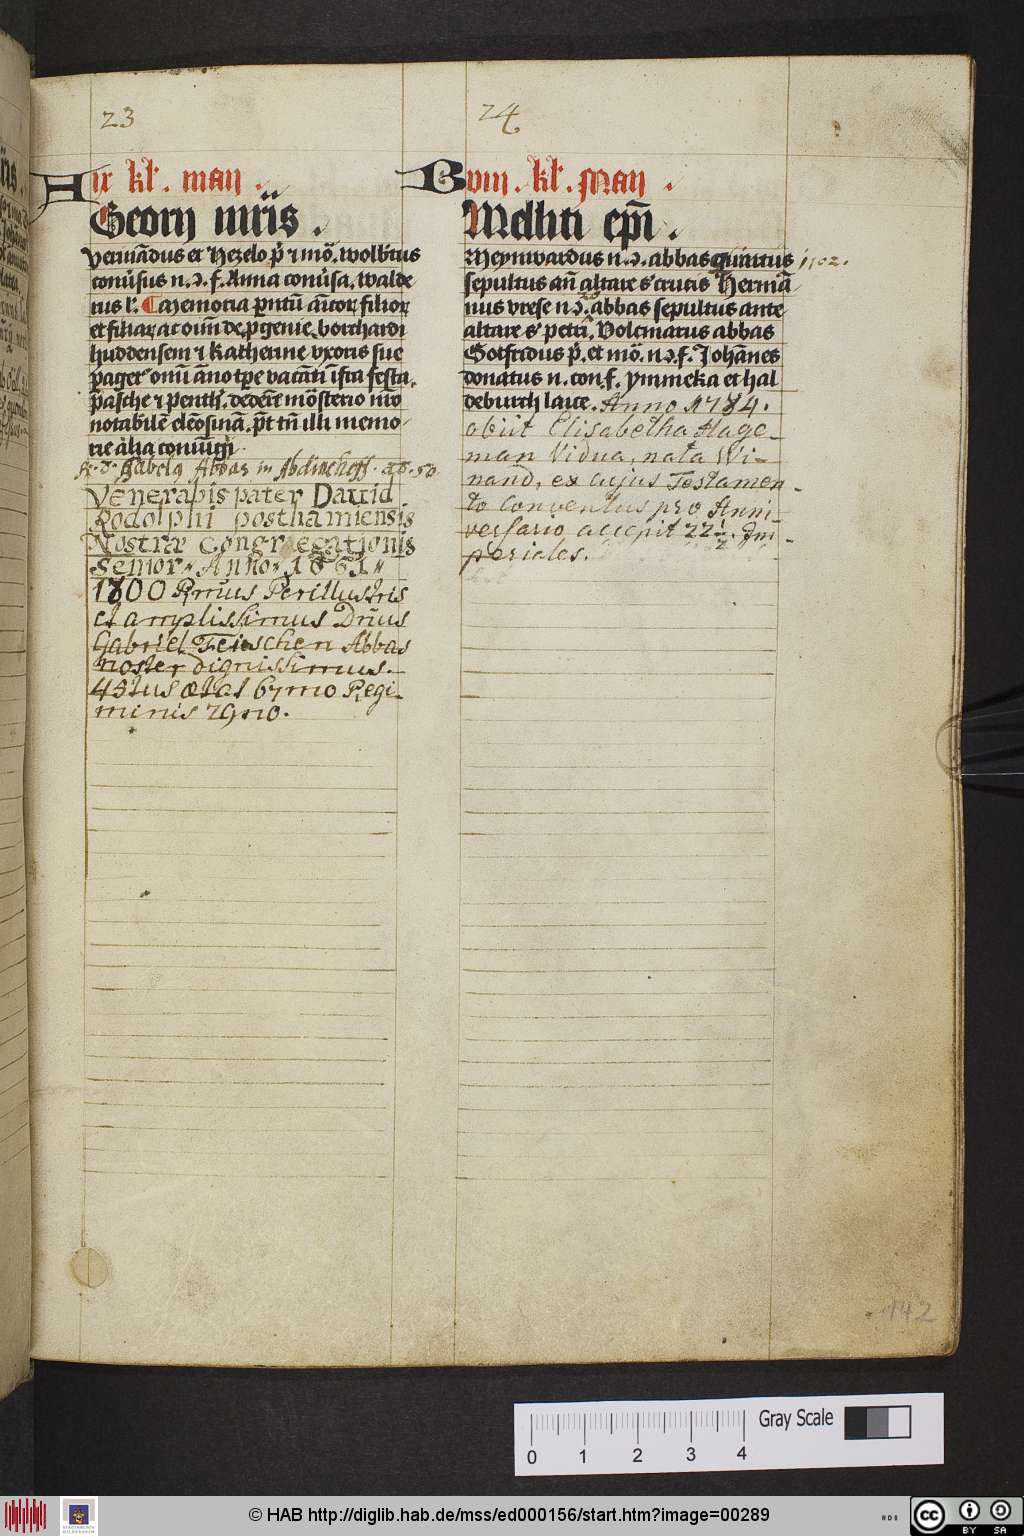 23
A ix kl. maii.
Georii mris.
Vernādus et Hezelo pr̄ ⁊ mō. wolb'tus
conūsus n. ɔ. f. Anna conūsa, walde
rus lr. Memoria
et filiar ac oīm de pgenie borchardi
huddensem ⁊ katherine vxoris sue
paget' omī āno tpe vacāti īfra festa
pasche ⁊ penth'. dedere mōsterio nr̄o
notabilē elēosinā. pt tn̄ illi memo-
rie alia coniūgi
Abbas in Abdinchoff
Venerabis pater Dauid
Rodolphi posthamiensis
Nostræ Congregationis
Senior Anno 1661
1800 Rmus Perillustris
et amplissimus Dnus
Gabriel Abbas
noster dignissimus.
43tus ætat 67mo Regi-
minis 29no.
24
B viii. kl. Maii.
Melliti epi.
Meynwardus n. ɔ. abbas quintus 1102.
sepultus an̄ altare s' crucis Hermā
nus vrese n. ɔ. abbas sepultus ante
altare s' petri. Volcmarus abbas
Gotfridus pr̄. et mō. n. ɔ. f. Johānes
donatus n. con. f. ymmeka et hal
deburch laice. Anno 1784.
obiit Elisabetha Hage-
man Vidua, nata Wi-
nand, ex cujus Testamen-
to Conventus pro Anni-
versario accepit 22½. Im-
periales.
142
Gray Scale
0 1 2 3 4
© HAB http://diglib.hab.de/mss/ed000156/start.htm?image=00289
cc BY SA